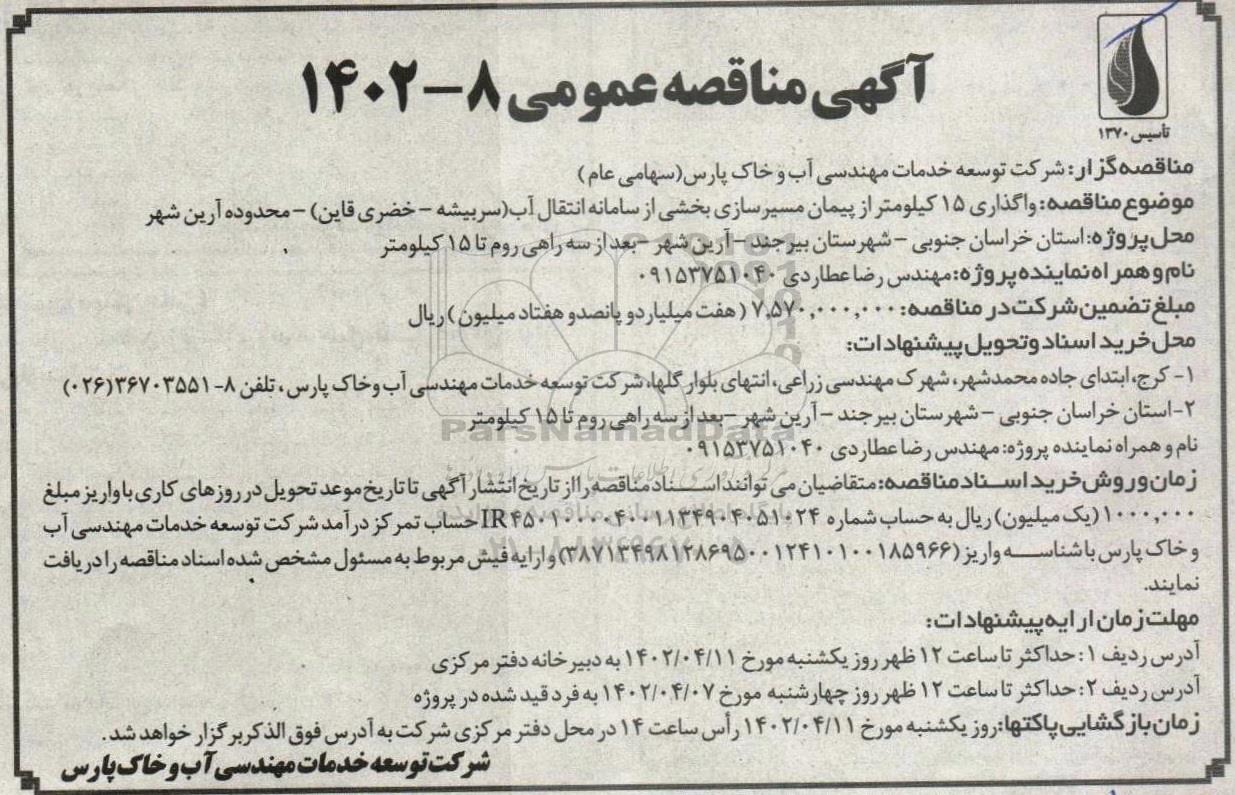 تأسیس ۱۳۷۰
آگهی مناقصه عمومی ۸-۱۴۰۲
مناقصه‌گزار: شرکت توسعه خدمات مهندسی آب و خاک پارس(سهامی عام)
موضوع مناقصه: واگذاری ۱۵ کیلومتر از پیمان مسیرسازی بخشی از سامانه انتقال آب(سربیشه - خضری قاین) - محدوده آرین شهر
محل پروژه: استان خراسان جنوبی - شهرستان بیرجند - آرین شهر - بعد از سه راهی روم تا ۱۵ کیلومتر
نام و همراه نماینده پروژه: مهندس رضا عطاردی ۰۹۱۵۳۷۵۱۰۴۰
مبلغ تضمین شرکت در مناقصه: ۷.۵۷۰,۰۰۰,۰۰۰ ( هفت میلیارد و پانصد و هفتاد میلیون ) ریال
محل خرید اسناد و تحویل پیشنهادات:
۱- کرج، ابتدای جاده محمدشهر، شهرک مهندسی زراعی، انتهای بلوار گلها، شرکت توسعه خدمات مهندسی آب و خاک پارس ، تلفن ۸-۳۶۷۰۳۵۵۱(۰۲۶)
۲- استان خراسان جنوبی - شهرستان بیرجند - آرین شهر - بعد از سه راهی روم تا ۱۵ کیلومتر
ParsNamadData
نام و همراه نماینده پروژه: مهندس رضا عطاردی ۰۹۱۵۳۷۵۱۰۴۰
زمان و روش خرید اسناد مناقصه: متقاضیان می توانند اسناد مناقصه را از تاریخ انتشار آگهی تا تاریخ موعد تحویل در روزهای کاری با واریز مبلغ
۱۰۰۰,۰۰۰ (یک میلیون) ریال به حساب شماره IR۴۵۰۱۰۰۰۰۴۰۰۱۱۳۴۹۰۴۰۵۱۰۲۴ حساب تمرکز درآمد شرکت توسعه خدمات مهندسی آب
و خاک پارس با شناسه واریز (۳۸۷۱۳۴۹۸۱۲۸۶۹۵۰۰۱۲۴۱۰۱۰۰۱۸۵۹۶۶) و ارایه فیش مربوط به مسئول مشخص شده اسناد مناقصه را دریافت
نمایند.
مهلت زمان ارایه پیشنهادات:
آدرس ردیف ۱: حداکثر تا ساعت ۱۲ ظهر روز یکشنبه مورخ ۱۴۰۲/۰۴/۱۱ به دبیرخانه دفتر مرکزی
آدرس ردیف ۲: حداکثر تا ساعت ۱۲ ظهر روز چهارشنبه مورخ ۱۴۰۲/۰۴/۰۷ به فرد قید شده در پروژه
زمان بازگشایی پاکتها: روز یکشنبه مورخ ۱۴۰۲/۰۴/۱۱ رأس ساعت ۱۴ در محل دفتر مرکزی شرکت به آدرس فوق الذکر برگزار خواهد شد.
شرکت توسعه خدمات مهندسی آب و خاک پارس